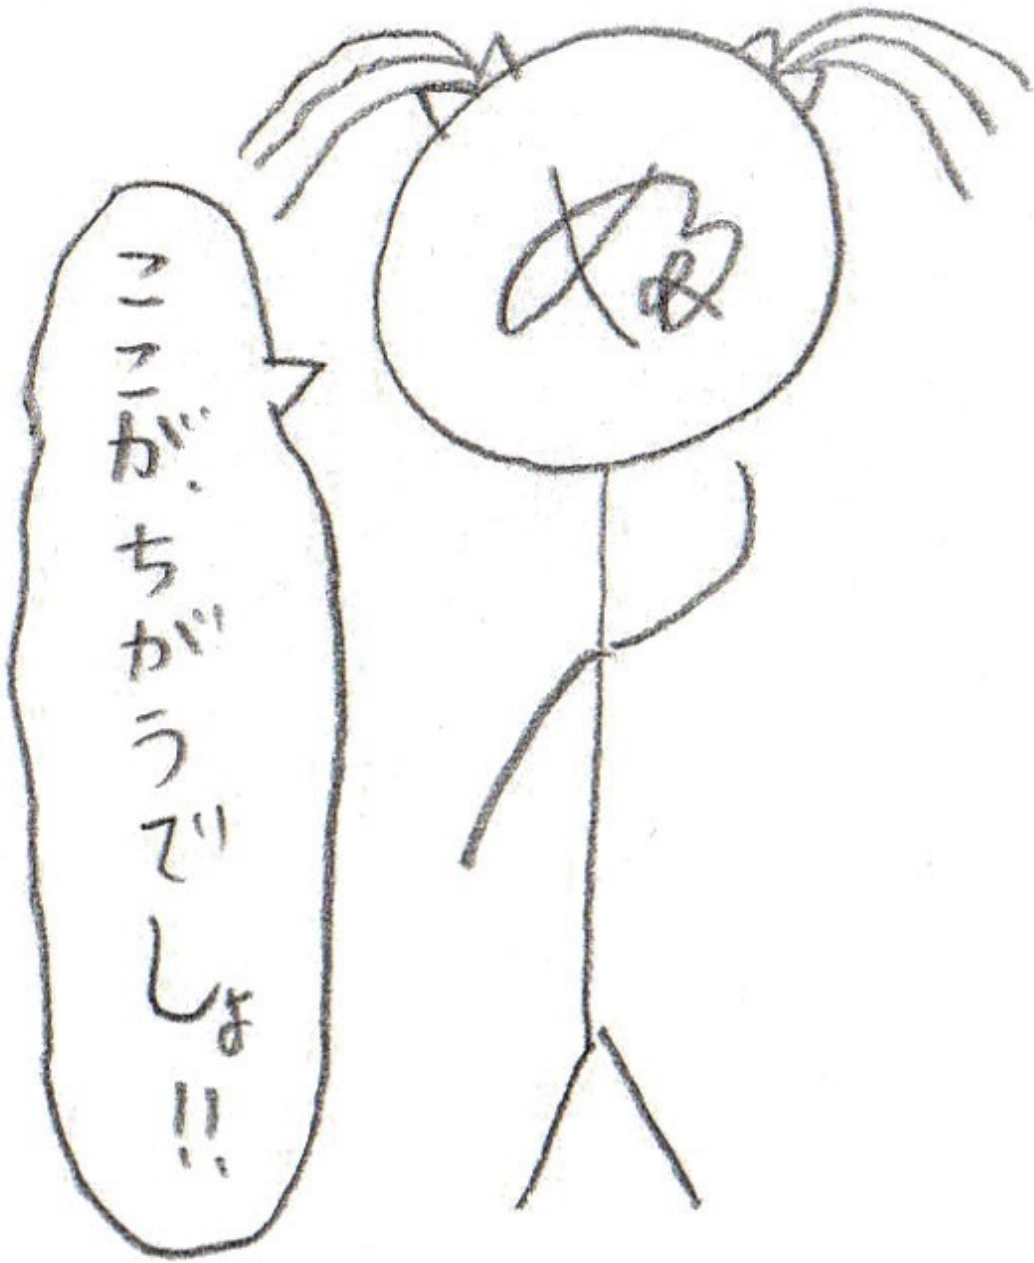 ここが、ちがうでしょ!!
ぬ